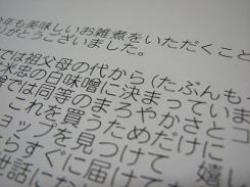 年も美味しいお雑煮をいただくこと
りがとうございました。
では祖父母の代から(たぶんも
光忠の白味噌に決まっていま
では同等のまろやかさとコ
これを買うためだけに
ョップを見つけて 嬉し
らすぐに届けて
世話にな